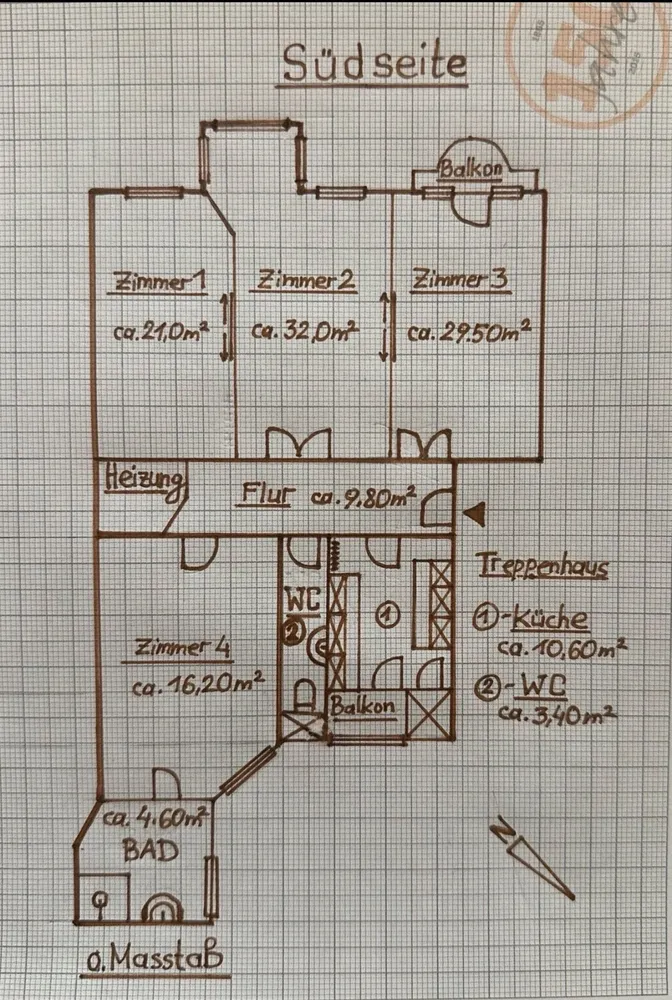 Südseite
1865
150
Jahre
2015
Balkon
Zimmer 1
ca. 21,0m²
Zimmer 2
ca. 32,0m²
Zimmer 3
ca. 29.50m²
Heizung
Flur ca. 9.80m²
Treppenhaus
①-Küche
ca. 10,60m²
②-WC
ca. 3,40m²
WC
②
①
Zimmer 4
ca. 16,20m²
Balkon
ca. 4.60m²
BAD
N
o.Masstaß